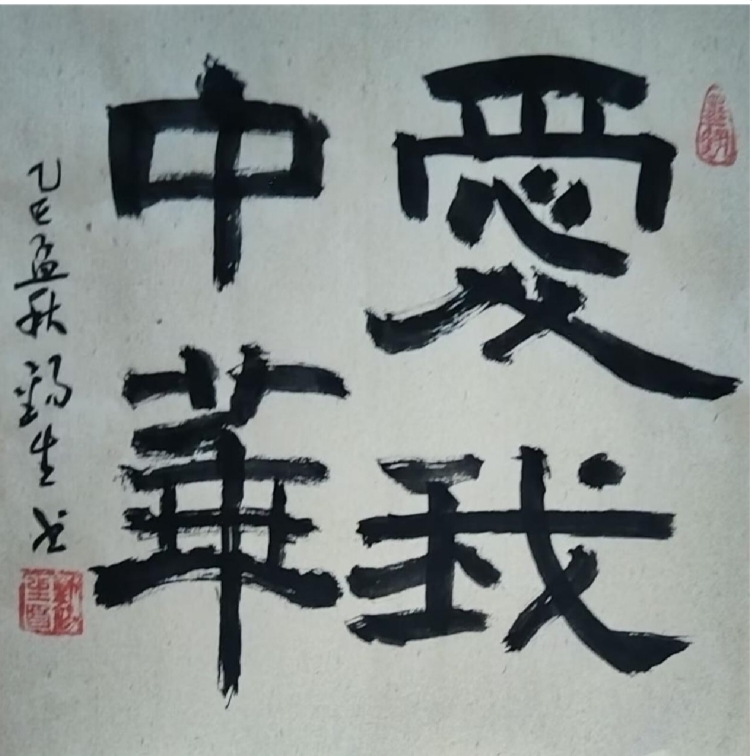 愛我
中華
乙巳孟秋锡生书